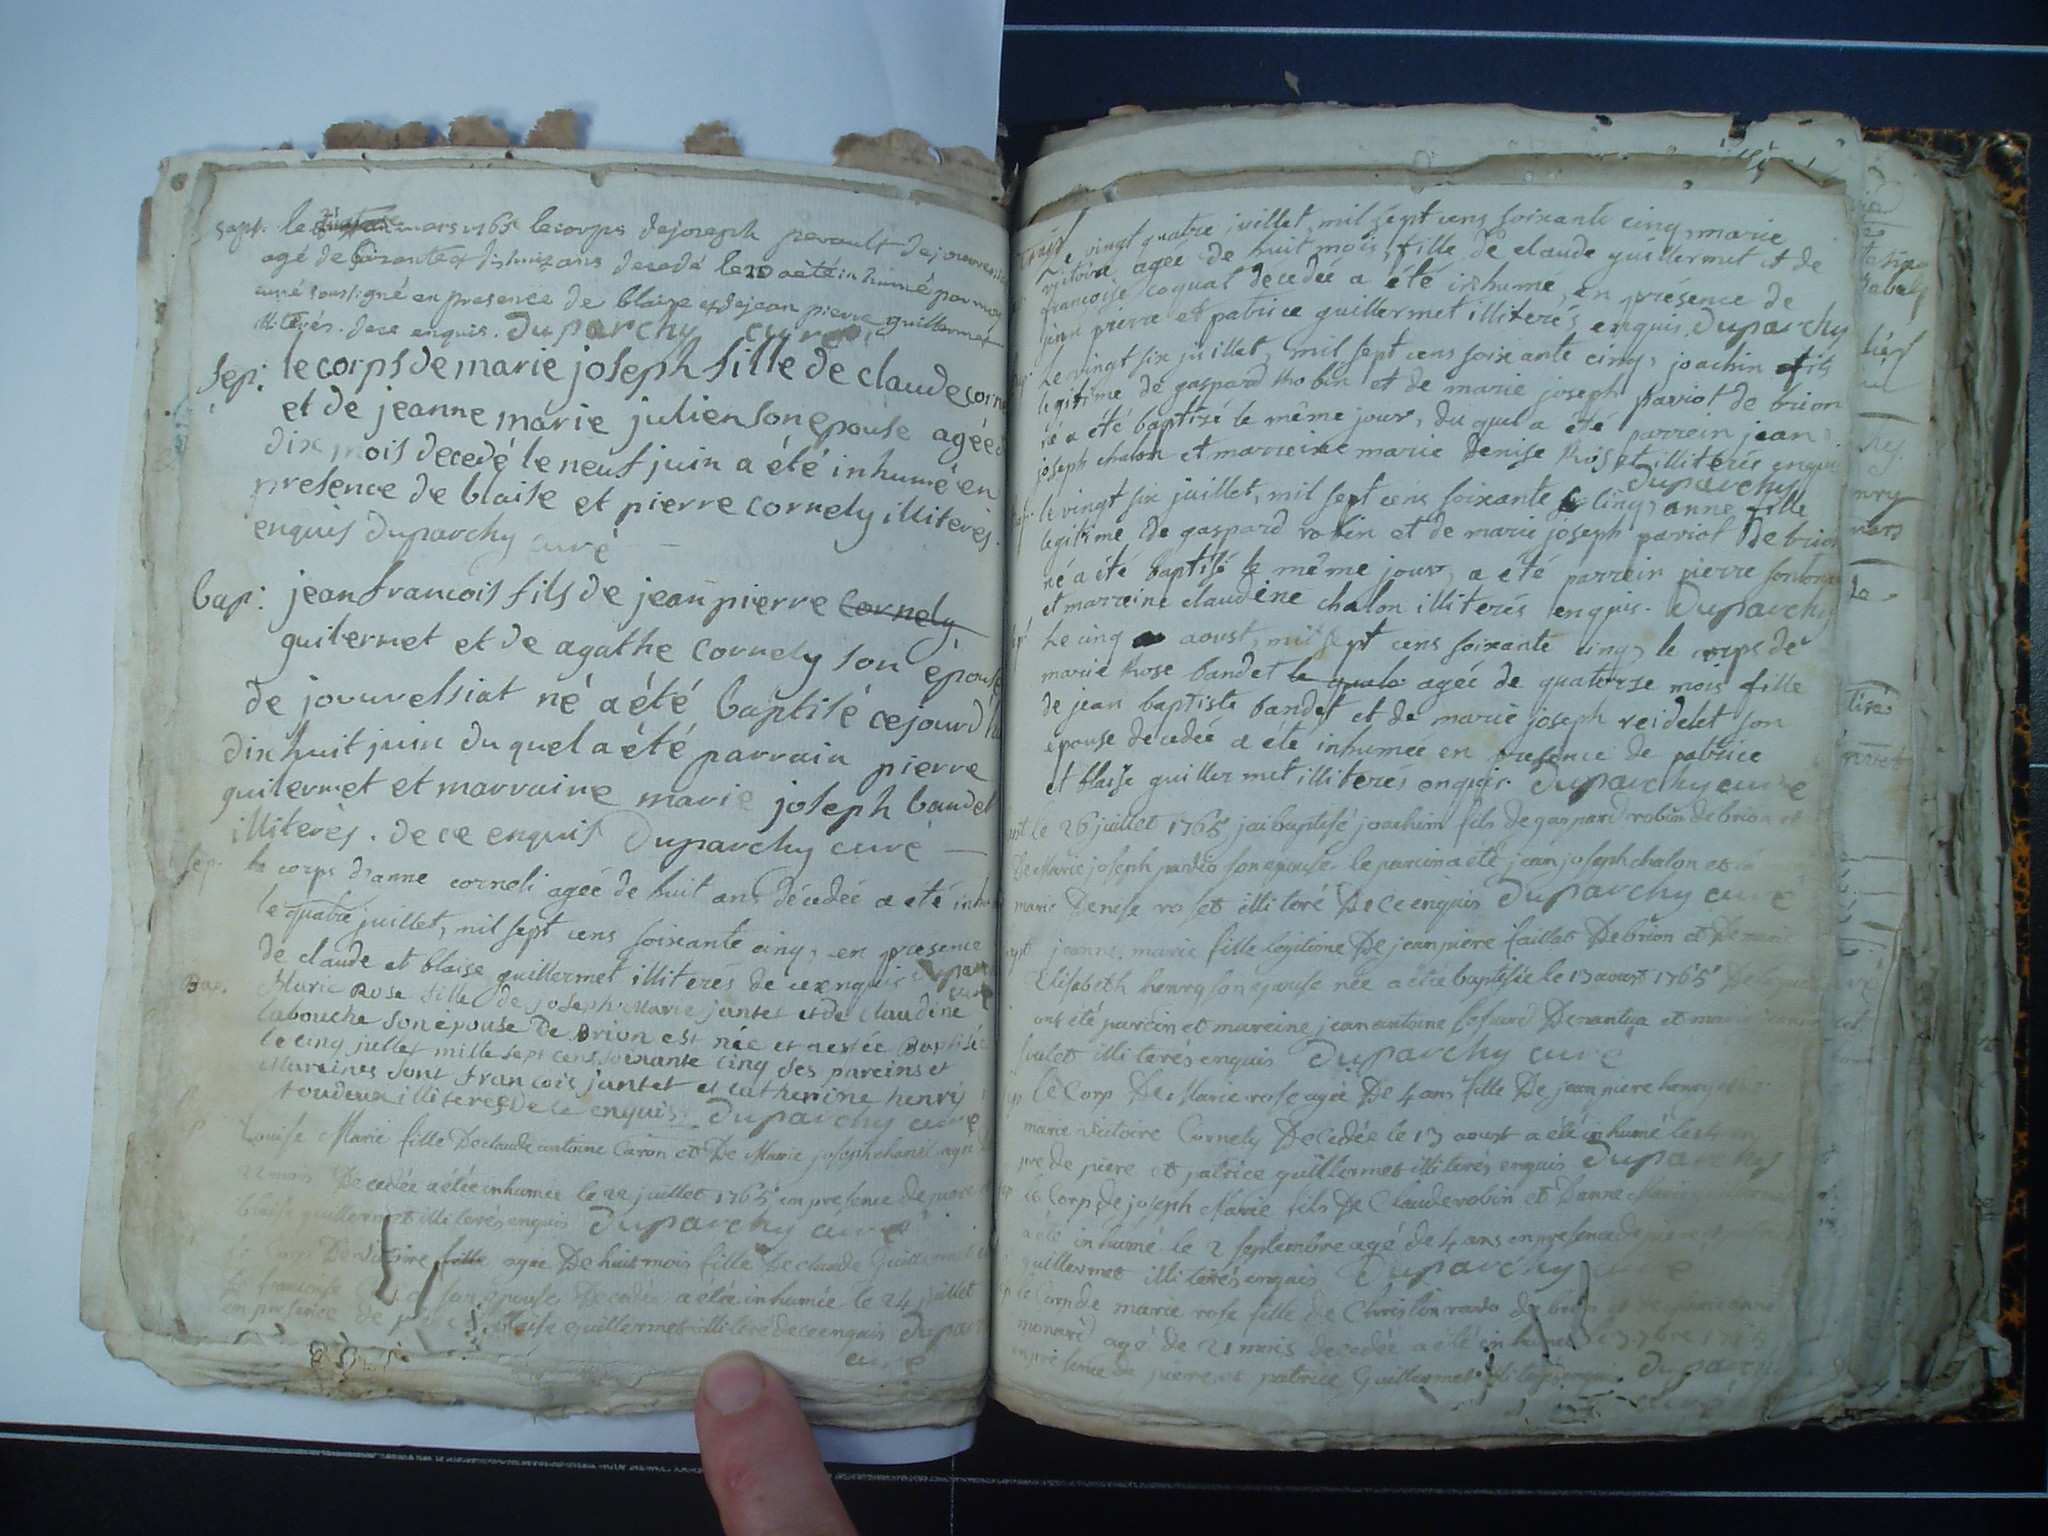 sept. le mars 1765 le corps de joseph perrault de
agé de soixante et dixhuit ans decedé le 20 a été inhumé par moy
curé soussigné en presence de blaise et de jean pierre guillermet
illiterés. de ce enquis. Duparchy curé
sep: le corps de marie joseph fille de claude corne
et de jeanne marie julien son epouse agée d
dix mois decedé le neuf juin a été inhumé en
presence de blaise et pierre cornely illiterés.
enquis Duparchy curé
bap: jean francois fils de jean pierre cornely
guilermet et de agathe cornely son épouse
de jouvuelsiat né a été baptisé ce jourd'hu
dixhuit juin du quel a été parrain pierre
guilermet et marraine marie joseph baudet
illiterés. de ce enquis Duparchy curé
sep. le corps d'anne corneli agée de huit ans décédée a été inhu
le quatre juillet, mil sept cens soixante cinq, en présence
de claude et blaise guillermet illiterés de ce enquis Dupar
curé
Bap. Marie Rose fille de joseph Marie juntet et de claudine
labouche son épouse De Brion est née et a estée Baptisée
le cinq jullet mille sept cens soixante cinq ses pareins et
Mareines sont francois juntet et catherine henry
toudeux illiteres de ce enquis. Duparchy curé
sep Louise Marie fille De claude antoine Caron et De Marie joseph chanel agée
22 mois Decedée a étée inhumée le 22 juillet 1765 en presence de pierre
blaise guillermet illiterés enquis Duparchy curé
le Corp De victoire fille agée De huit mois fille De claude Guillermet
de francoise son epouse Decedée a étée inhumée le 24 juillet
en presence de blaise guillermet illitere de ce enquis Dupar
curé
vingt quatre juillet, mil sept cens soixante cinq, marie
victoire agée de huit mois, fille de claude guillermet et de
francoise coquat decedée a été inhumé, en présence de
jean pierre et patrice guillermet illiterés enquis. Duparchy
Le vingt six juillet, mil sept cens soixante cinq, joachin fils
legitime de gaspard Robin et de marie joseph paviot de brion
né a été baptizé le même jour, du quel a été parrein jean
joseph chalon et marreine marie denise Roset illiterés enquis
Duparchy
le vingt six juillet, mil sept cens soixante cinq, anne fille
legitime de gaspard robin et de marie joseph paviot de brion
né a été baptisé le même jour, a été parrein pierre
et marreine claudine chalon illiterés enquis. Duparchy
Le cinq aoust, mil sept cens soixante cinq, le corps de
marie Rose bandet agée de quatorse mois fille
de jean baptiste bandet et de marie joseph reidelet son
epouse decedée a été inhumée en presence de patrice
et blaise guillermet illiterés enquis. Duparchy curé
le 26 juillet 1765 jai baptisé joachim fils de gaspard robin de brion et
De Marie joseph son epouse. le parein a été jean joseph chalon et
marie Denise roset illiteré De ce enquis Duparchy curé
jeanne marie fille legitime De jean piere De brion et De marie
Elisabeth henry son epouse née a étée baptisée le 13 aoust 1765
ont été parein et mareine jean antoine De nantua et marie jeanne
illiterés enquis Duparchy curé
Le Corp De Marie rose agée De 4 ans fille De jean piere henry et
marie victoire Cornely Decedée le 13 aoust a été inhumé le
pre de piere et patrice guillermet illiterés enquis Duparchy
le Corp de joseph Marie fils De Claude robin et D'anne Marie
a été inhumé le 2 septembre agé de 4 ans en presence de piere et
guillermet illiterés enquis Duparchy curé
le Corp de marie rose fille de de brion
agé de 21 mois decedée a été inhumé 7bre 1765
en presence de piere et patrice Guillermet illiterés enquis. Duparchy
curé